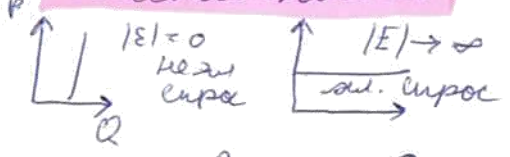 P
|ε| = 0
неэл
спрос
Q
|E| → ∞
эл. спрос